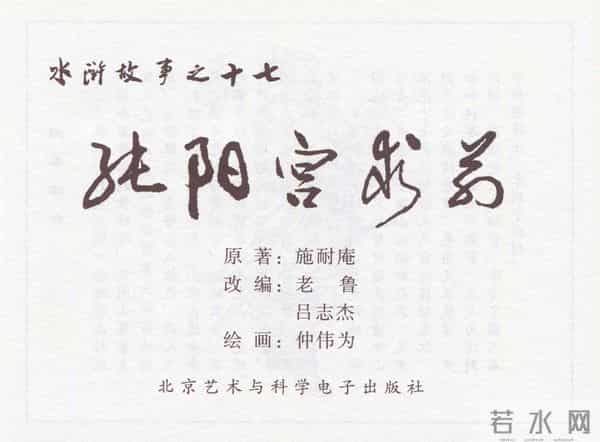 水浒故事之十七
纯阳宫求
原 著：施耐庵
改 编：老 鲁
吕志杰
绘 画：仲伟为
北京艺术与科学电子出版社
若水网